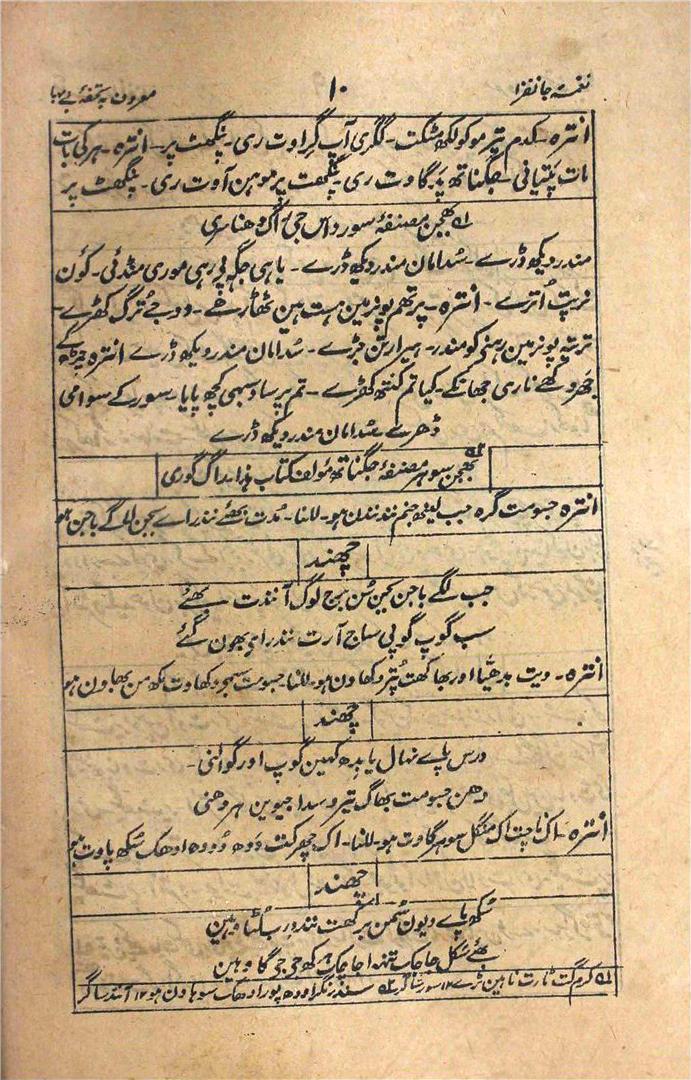 نغمۂ جانفزا ۱۰ معروف بہ تحفۂ بے بہا
انترہ۔ کدم تیر موکو لکھ مٹکت۔ گگری آپ گراوت ری۔ پنگھٹ پر۔ انترہ۔ ہر کی بات
مات پتیانی۔ جگناتھ پد گاوت ری۔ پنگھٹ پر موہن آوت ری۔ پنگھٹ پر
بھجن مصنفۂ سورداس جی راگ دھناسری
مندر دیکھ ڈرے۔ سُدامان مندر دیکھ ڈرے۔ یاہی جگہ پی رہی موری منڈئی۔ کون
نرپت اُترے۔ انترہ۔ پرتھم پونر مین ہست ہین ٹھاڑھے۔ دوجے تُرگ کھڑے۔
ترتیہ پونر مین ہنی کو مندر۔ ہیرا رتن جڑے۔ سُدامان مندر دیکھ ڈرے انترہ چڑھ کے
جھروکھے ناری جھانکے۔ کیا تم کنتھ کھڑے۔ تمہر پرساد سبھی کچھ پایا۔ سور کے سوامی
ڈھرے سُدامان مندر دیکھ ڈرے
بھجن سوہر مصنفۂ جگناتھ مؤلف کتاب ہذا براگ گوری
انترہ جسومت گرہ جب لیتھ جنم نند نندن ہو۔ للنا۔ مُدت بھئے نندراے بجن لاگے باجن ہو
چھند
جب لگے باجن بجن سُن برج لوگ آنندت بھئے
سب گوپ گوپی ساج آرت نندراے بھون گئے
انترہ۔ دیت بدھیّا اور بھاکھت پُتر دکھاون ہو۔ للنا۔ جسومت سمجھ دکھاوت مکھ من بھاون ہو
چھند
درس پاے نہال یا بدھ کہین گوپ اور گوالنی۔
دھن جسومت بھاگ تیرو سدا جیوین ہر دھنی
انترہ۔ اک ناچت اک منگل سوہر گاوت ہو۔ للنا۔ اک چھرکت دَدھ دُودھ ادھک سُکھ پاوت ہو
چھند
سُکھ پاے دیون سُمن برکھت نند درب لُٹاوہین
بھئے سکل جاچک تندا جاچک مکھ جی جی گاوہین
کرم گت ٹارت ناہین ٹرے ۱۲ سور ساگر سندر نگر اودھ پور ادھک سوہاون ہو ۱۲ آنند ساگر